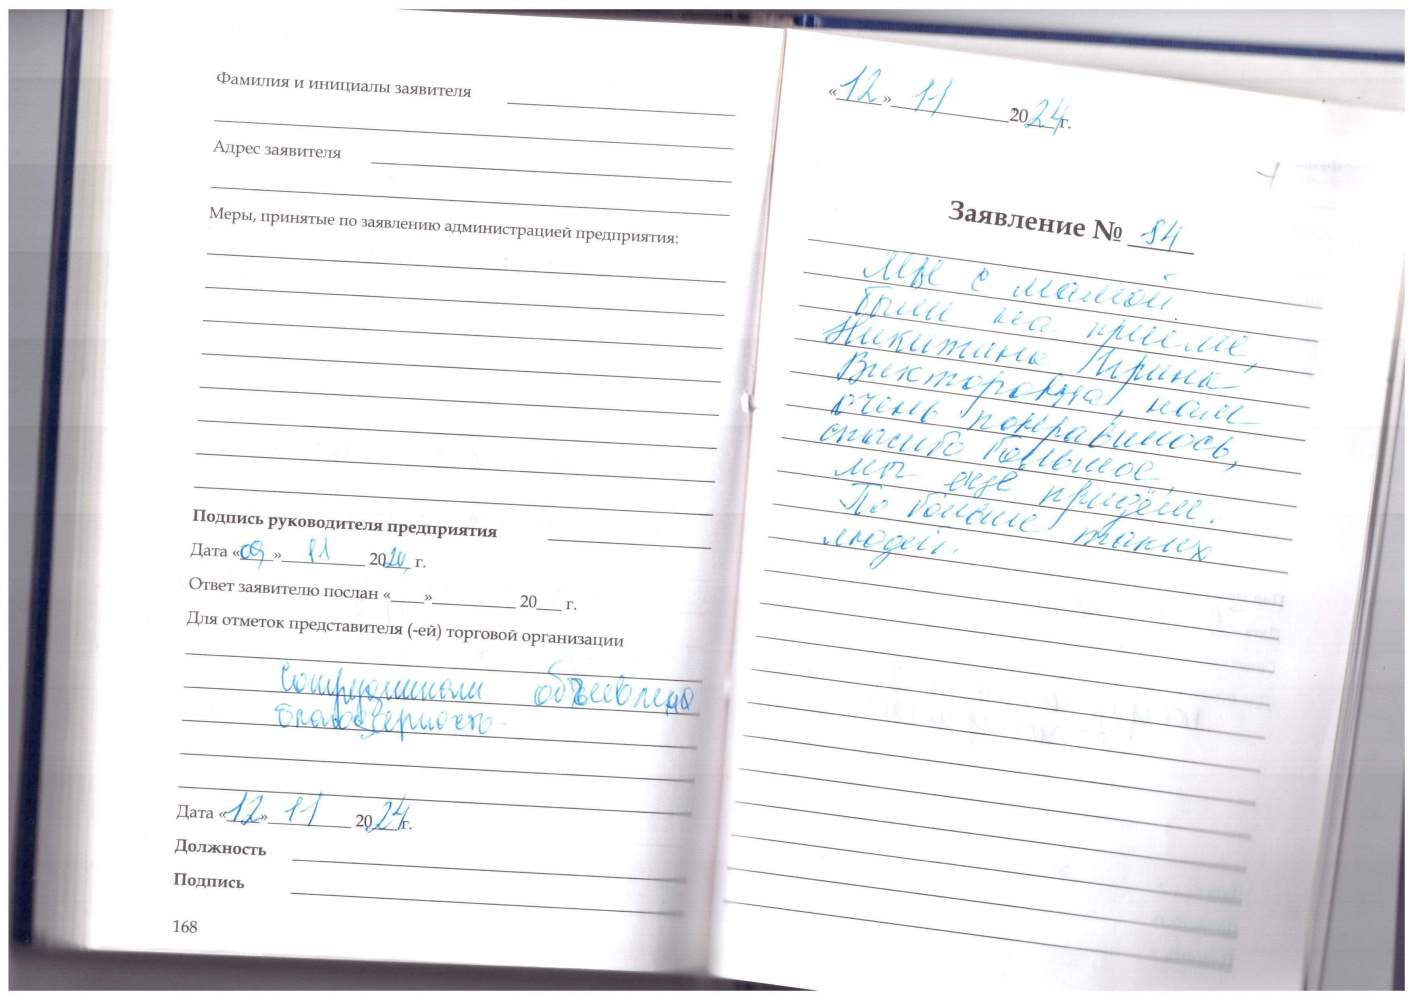 Фамилия и инициалы заявителя
Адрес заявителя
Меры, принятые по заявлению администрацией предприятия:
Подпись руководителя предприятия
Дата «09» 11 2024 г.
Ответ заявителю послан «____»__________ 20___ г.
Для отметок представителя (-ей) торговой организации
Сотрудникам объявлена
благодарность.
Дата «12» 11 2024 г.
Должность
Подпись
168
«12» 11 2024 г.
Заявление № 84
Мы с мамой
были на приеме,
Никитина Ирина
Викторовна, нам
очень понравилось,
спасибо большое,
мы еще придём.
По больше таких
людей.